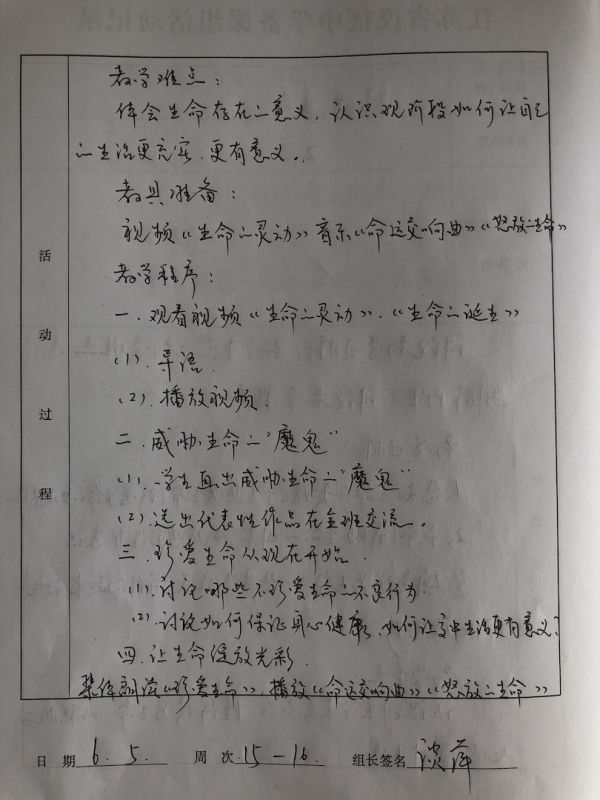 教学难点：
体会生命存在的意义，认识现阶段如何让自己
的生活更充实，更有意义。
教具准备：
视频《生命的灵动》音乐《命运交响曲》《怒放的生命》
教学程序：
一、观看视频《生命的灵动》、《生命的诞生》
(1)、导语
(2)、播放视频
二、威胁生命的“魔鬼”
(1)、学生画出威胁生命的“魔鬼”
(2)、选出代表性作品在全班交流。
三、珍爱生命从现在开始
(1) 讨论哪些不珍爱生命的不良行为
(2) 讨论如何保证身心健康，如何让高中生活更有意义？
四、让生命绽放光彩
集体朗读《珍爱生命》，播放《命运交响曲》《怒放的生命》
活动过程
日期 6.5. 周次 15-16 组长签名 谈萍